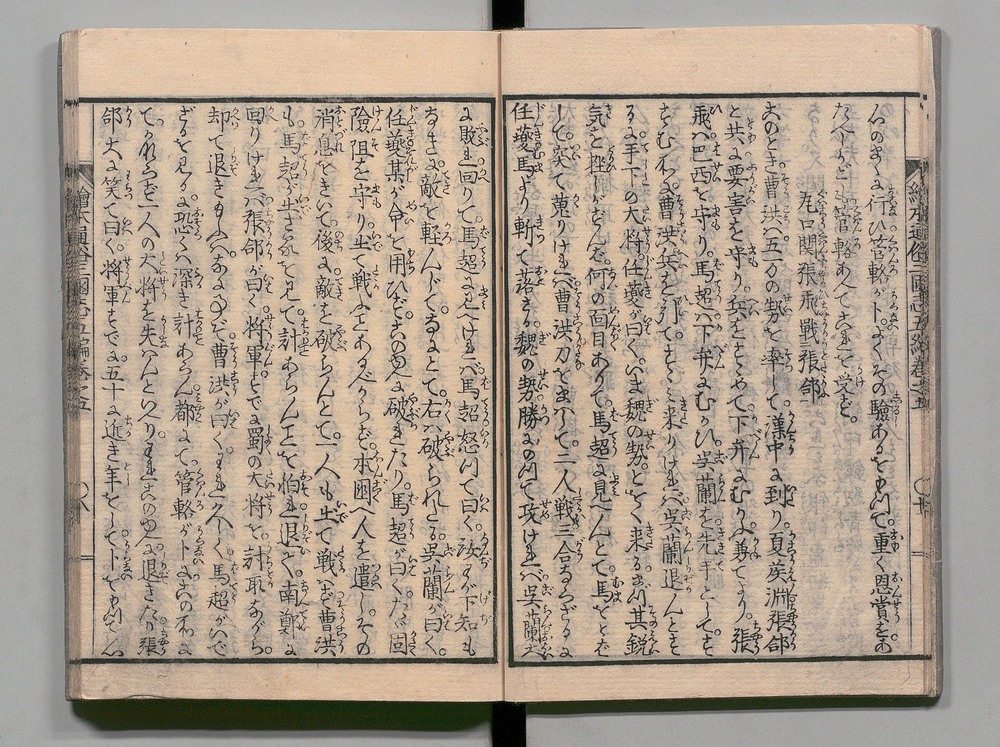 人のまうに行ひ管輅が卜よくその驗あるをもつて重く恩賞をあ
たへけれども管輅あへてこれを受ず
瓦口關張飛戰張郃
去のとき曹洪は五万の勢を率して漢中に到り夏侯淵張郃
と共に要害を守り兵をすゝめて下弁にむかふ兼てより張
飛ハ巴西を守り馬超ハ下弁にむかひ呉蘭を先手として
曹洪兵を引て来りけれバ呉蘭退んとす
るに手下の大将任夔が曰くいま魏の勢とをく来るに其鋭
気を挫がずんバ何の面目ありて馬超に見へんとて馬をとば
して突て蒐りけれバ曹洪刀をまハして二人戦三合ならざるに
任夔馬より斬て落さる魏の勢勝にのつて攻けれバ呉蘭大
に敗れ回りて馬超に見へけれバ馬超怒つて曰く汝わが下知も
なきに敵を軽んじて破られたる呉蘭が曰く
任夔某が命を用ひずこのゆへに破れたり馬超が曰くたゞ固く
險阻を守り出て戦ふことあるべからず本国へ人を遣しその
消息をきいて後に敵を破らんとて一人も出て戦ハず曹洪
も馬超が出ざるを見て計あらんことを怕れ退て南鄭に
回りけれバ張郃が曰く将軍すでに蜀の大将を討取ながら
却て退きたまふハなに事ぞ曹洪が曰くわれ久しく馬超がいで
ざるを見るに恐くハ深き計あらん都にて管輅が卜にこの所に
て一人の大将を失ハんといへりわれこのゆへに退きたり張
郃大に笑て曰く将軍すでに五十に近き年をして卜をもつて心
繪本通俗三國志五編巻之五
十
繪本通俗三國志五編巻之五
八